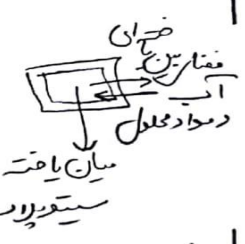 فضای بین
یاخته‌ای
آب
و مواد محلول
میان یاخته
سیتوپلاسم